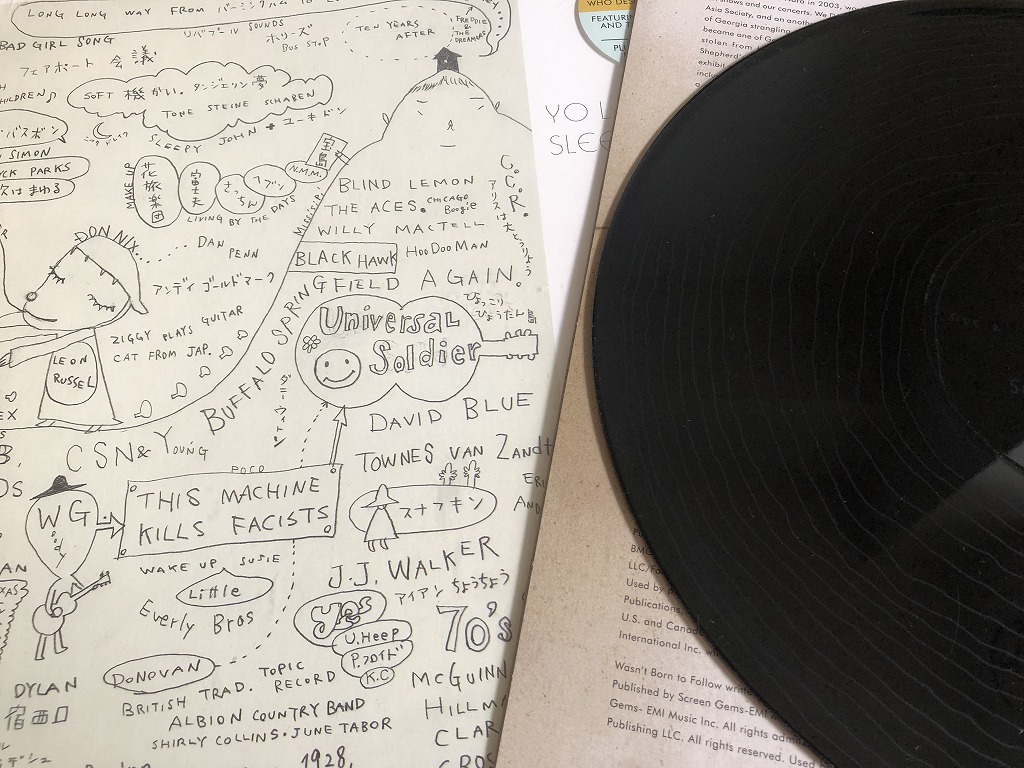 LONG LONG WAY FROM バーミンガム to
BAD GIRL SONG
リバプール SOUNDS
ホリーズ
BUS STOP
TEN YEARS
AFTER
FREDDIE
&
THE
DREAMERS
フェアポート 会議
CHILDREN
SOFT 機かい。タンジェリン夢
TONE STEINE SCHABEN
SLEEPY JOHN + ユーキドン
バスボン
SIMON
PARKS
次はまわる
MAKE UP
花旅楽団
富士夫
さっちん
ヘブン
N.M.M.
宝島
LIVING BY THE DAYS
Mississippi
BLIND LEMON
THE ACES.
CHICAGO
Boogie
WILLY MACTELL
BLACK HAWK
HooDooMAN
C.C.R.
アリスは大とうりょう
DON NIX
DAN
PENN
アンディ ゴールドマーク
ZIGGY PLAYS GUITAR
CAT FROM JAP.
LEON
RUSSEL
BUFFALO SPRINGFIELD AGAIN.
Universal
Soldier
ひょっこり
ひょうたん島
DAVID BLUE
CSN& Young
POCO
TOWNES VAN Zandt
スナフキン
WG
Woody
THIS MACHINE
KILLS FACISTS
WAKE UP SUSIE
Little
Everly Bros
J.J. WALKER
アイアン ちょうちょう
Yes
U.Heep
P.フロイド
K.C
70's
DONOVAN
TOPIC
RECORD
BRITISH TRAD.
ALBION COUNTRY BAND
SHIRLY COLLINS・JUNE TABOR
1928.
DYLAN
McGUINN
HILLM
CLAR
CROS
WHO DES
FEATURIN
AND T
PU
YO L
SLEE
in 2003, wo
shows and our concerts. We D
Asia Society, and on anoth
of Georgia strangling
became one of G
stolen from
Shepherd'
exhibit
inclu
BMG
LLC/Fo
Used by p
Publications,
U.S. and Canad
International Inc. wi
Wasn't Born to Follow writte
Published by Screen Gems-EMI
Gems- EMI Music Inc. All rights admi
Publishing LLC. All rights reserved. Used